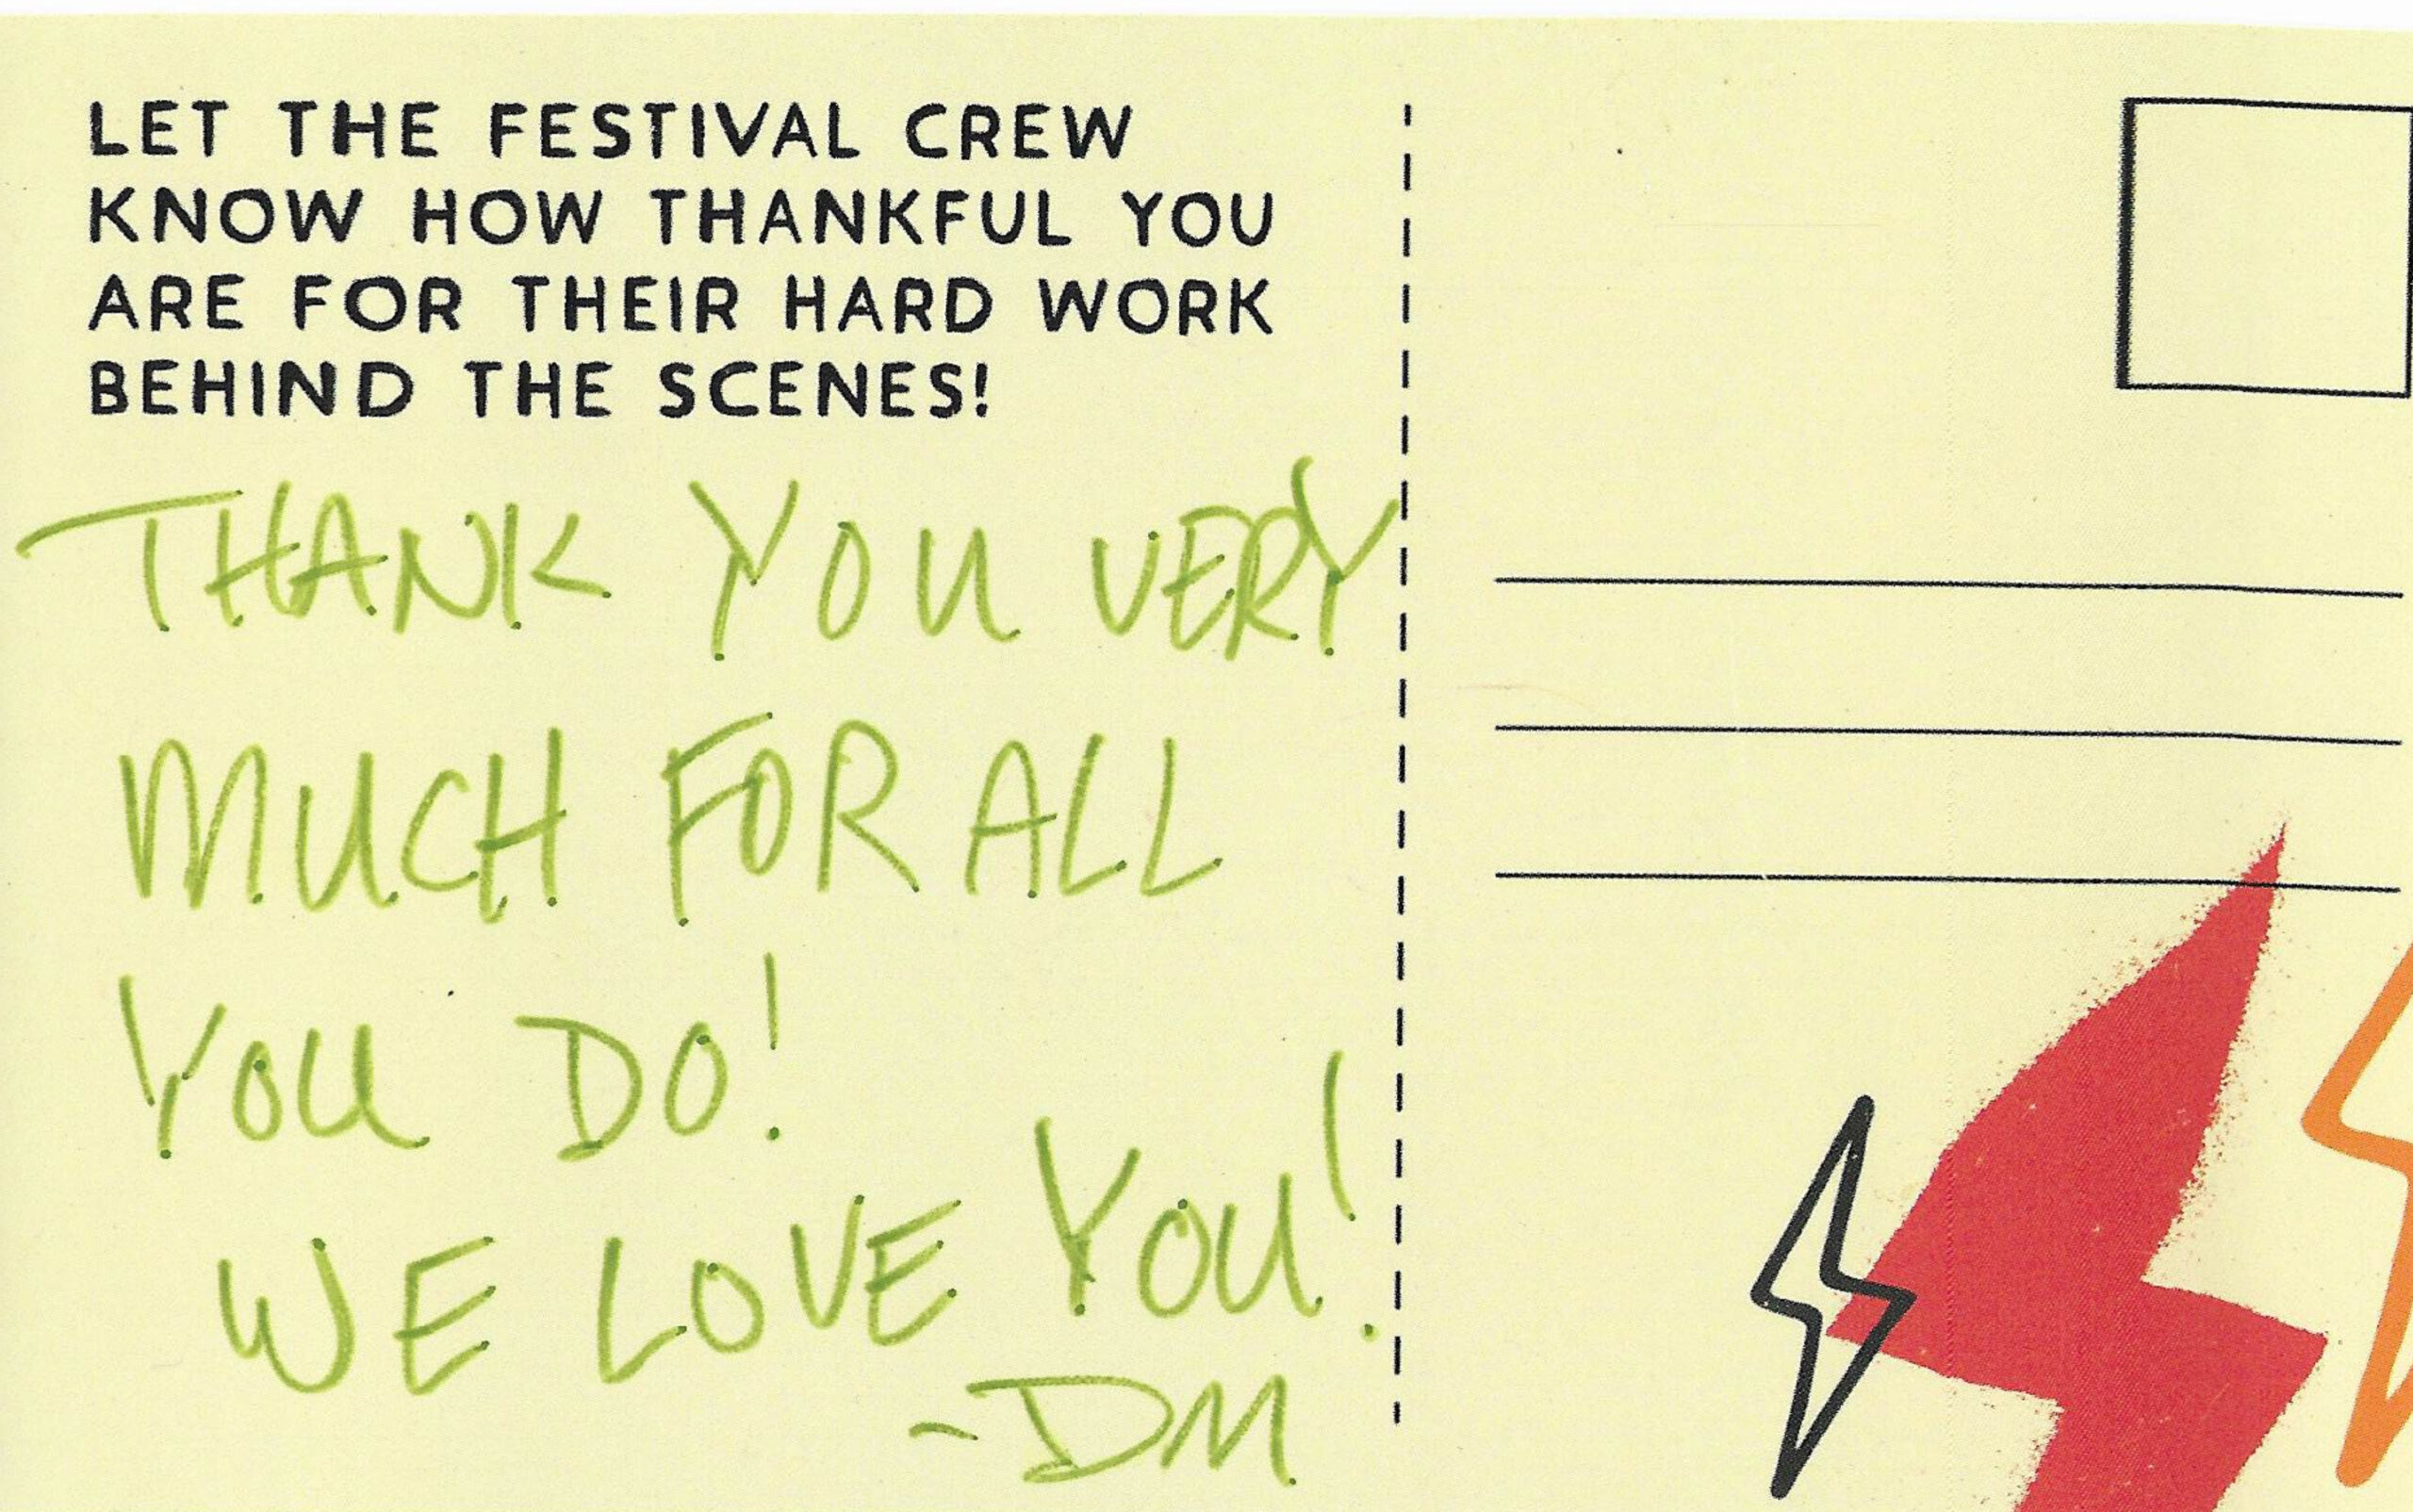 LET THE FESTIVAL CREW
KNOW HOW THANKFUL YOU
ARE FOR THEIR HARD WORK
BEHIND THE SCENES!
THANK YOU VERY
MUCH FOR ALL
YOU DO!
WE LOVE YOU!
-DM